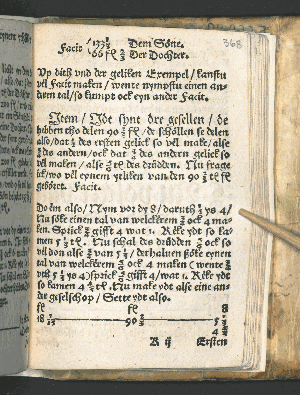 368
Facit 133 1/3 Dem Söne.
66 fl 2/3 Der Dochter.
Vp dith vnd der geliken Exempel/ kanstu
vel Facit maken / wente nympstu einen an-
dern tal/ so kumpt ock eyn ander Facit.
Item / Ode synt dre gesellen / de
hebben tho delen 90 fl/ de schöllen se delen
also/ dat des ersten gelick so vel make/ alse
des andern/ ock dat des andern gelick so
vel maken / alse fl des drüdden. Nu frage
ick/ wo vel eynem yeliken van den 90 fl
gehöret. Facit.
Do em also/ Nym vor dy 8/ daruth ys 4/
Nu söke einen tal van welckerem ock 4 ma-
ken. Sprick gifft 4 wat 1. Reke ydt so ka-
men fl. Nu schal des drüdden ock so
vel don alse van / derhaluen söke eynen
tal van welckerem ock 4 maken (wente
vth ys 4) sprick gifft 4/ wat 1. Reke ydt
so kamen 4 fl. Nu make ydt alse eine an-
der geselschop / Sette ydt also.
fl fl 8
18 90
4
R ij Ersten